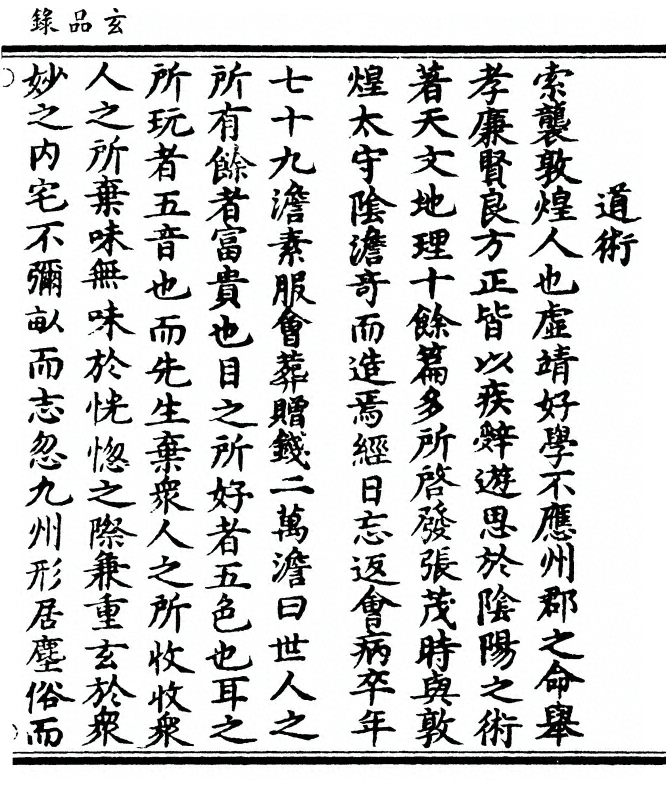 玄品錄
道術
索襲敦煌人也虛靖好學不應州郡之命舉
孝廉賢良方正皆以疾辤遊思於陰陽之術
著天文地理十餘篇多所啓發張茂時與敦
煌太守陰澹奇而造焉經日忘返會病卒年
七十九澹素服會葬贈錢二萬澹曰世人之
所有餘者富貴也目之所好者五色也耳之
所玩者五音也而先生棄衆人之所收收衆
人之所棄味無味於恍惚之際兼重玄於衆
妙之内宅不彌畝而志忽九州形居塵俗而